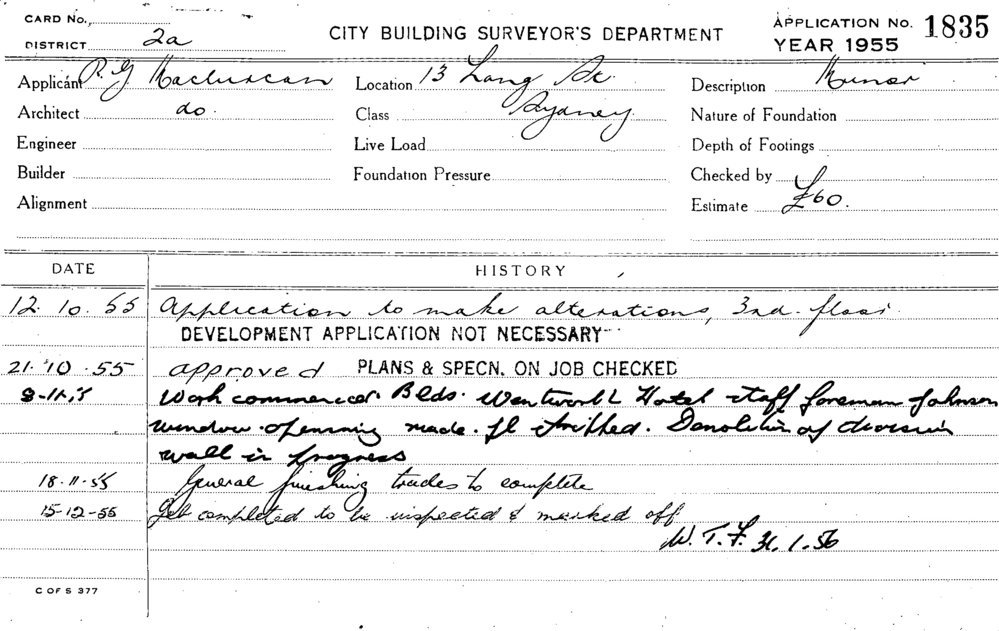 CARD No.
CITY BUILDING SURVEYOR'S DEPARTMENT
APPLICATION No. 1835
DISTRICT 2a
YEAR 1955
Applicant R. G. Maclurcan
Location 13 Lang St.
Description Minor
Architect do.
Class Sydney
Nature of Foundation
Engineer
Live Load
Depth of Footings
Builder
Foundation Pressure
Checked by
Alignment
Estimate £60.
DATE HISTORY
12.10.55 Application to make alterations, 3rd. floor.
DEVELOPMENT APPLICATION NOT NECESSARY
21.10.55 approved PLANS & SPECN. ON JOB CHECKED
8-11-5 Work commenced. Blds. Wentworth Hotel staff foreman Johnson
window opening made. fl stripped. Demolition of division
wall in progress
18.11.55 General finishing trades to complete
15-12-55 Job completed to be inspected & marked off
W. T. F. 31.1.56
C OF S 377